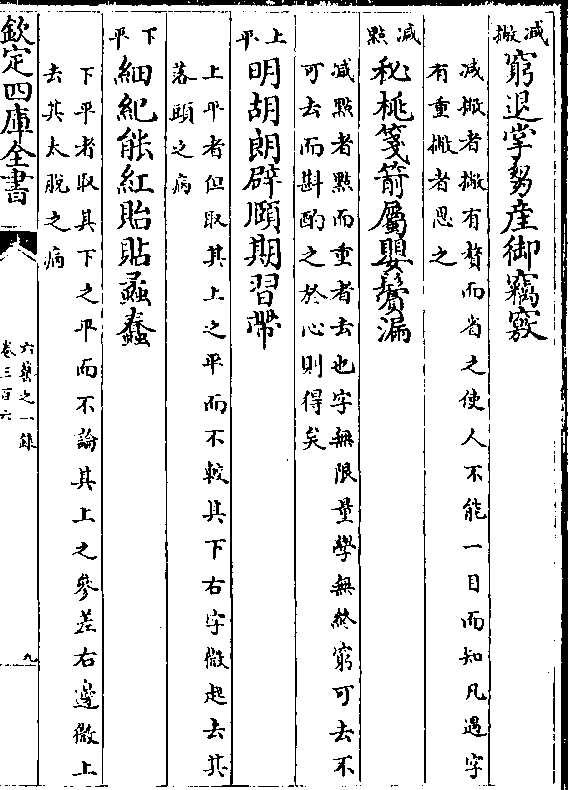 减撇
窮退掌努產御竊竅
减撇者撇有贅而省之使人不能一目而知凡遇字
有重撇者思之
减點
秘桃箋箭屬嬰鬢漏
减點者點而重者去也字無限量學無終窮可去不
可去而斟酌之於心則得矣
上平
明胡朗辟頤期習帶
上平者但取其上之平而不較其下右字微起去其
落頭之病
下平
細紀能紅貽貼蟊蠢
下平者取其下之平而不論其上之參差右邊微上
去其太脫之病
欽定四庫全書
六藝之一錄
卷三百六
九